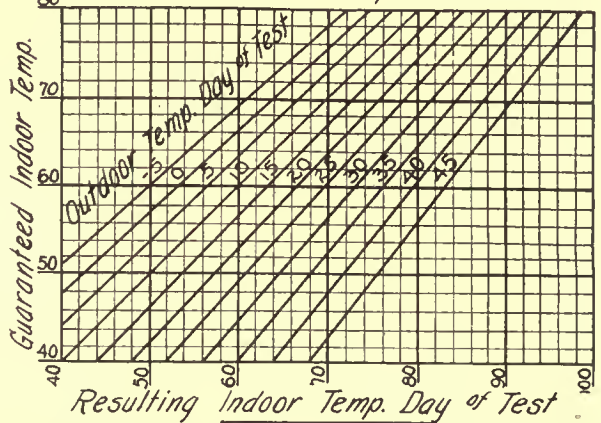 80
70
60
50
40
Guaranteed Indoor Temp.
Outdoor Temp. Day of Test
-5 0 5 10 15 20 25 30 35 40 45
40 50 60 70 80 90 100
Resulting Indoor Temp. Day of Test